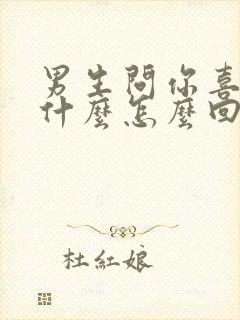 男生問你喜
什麼怎麼回
杜紅娘